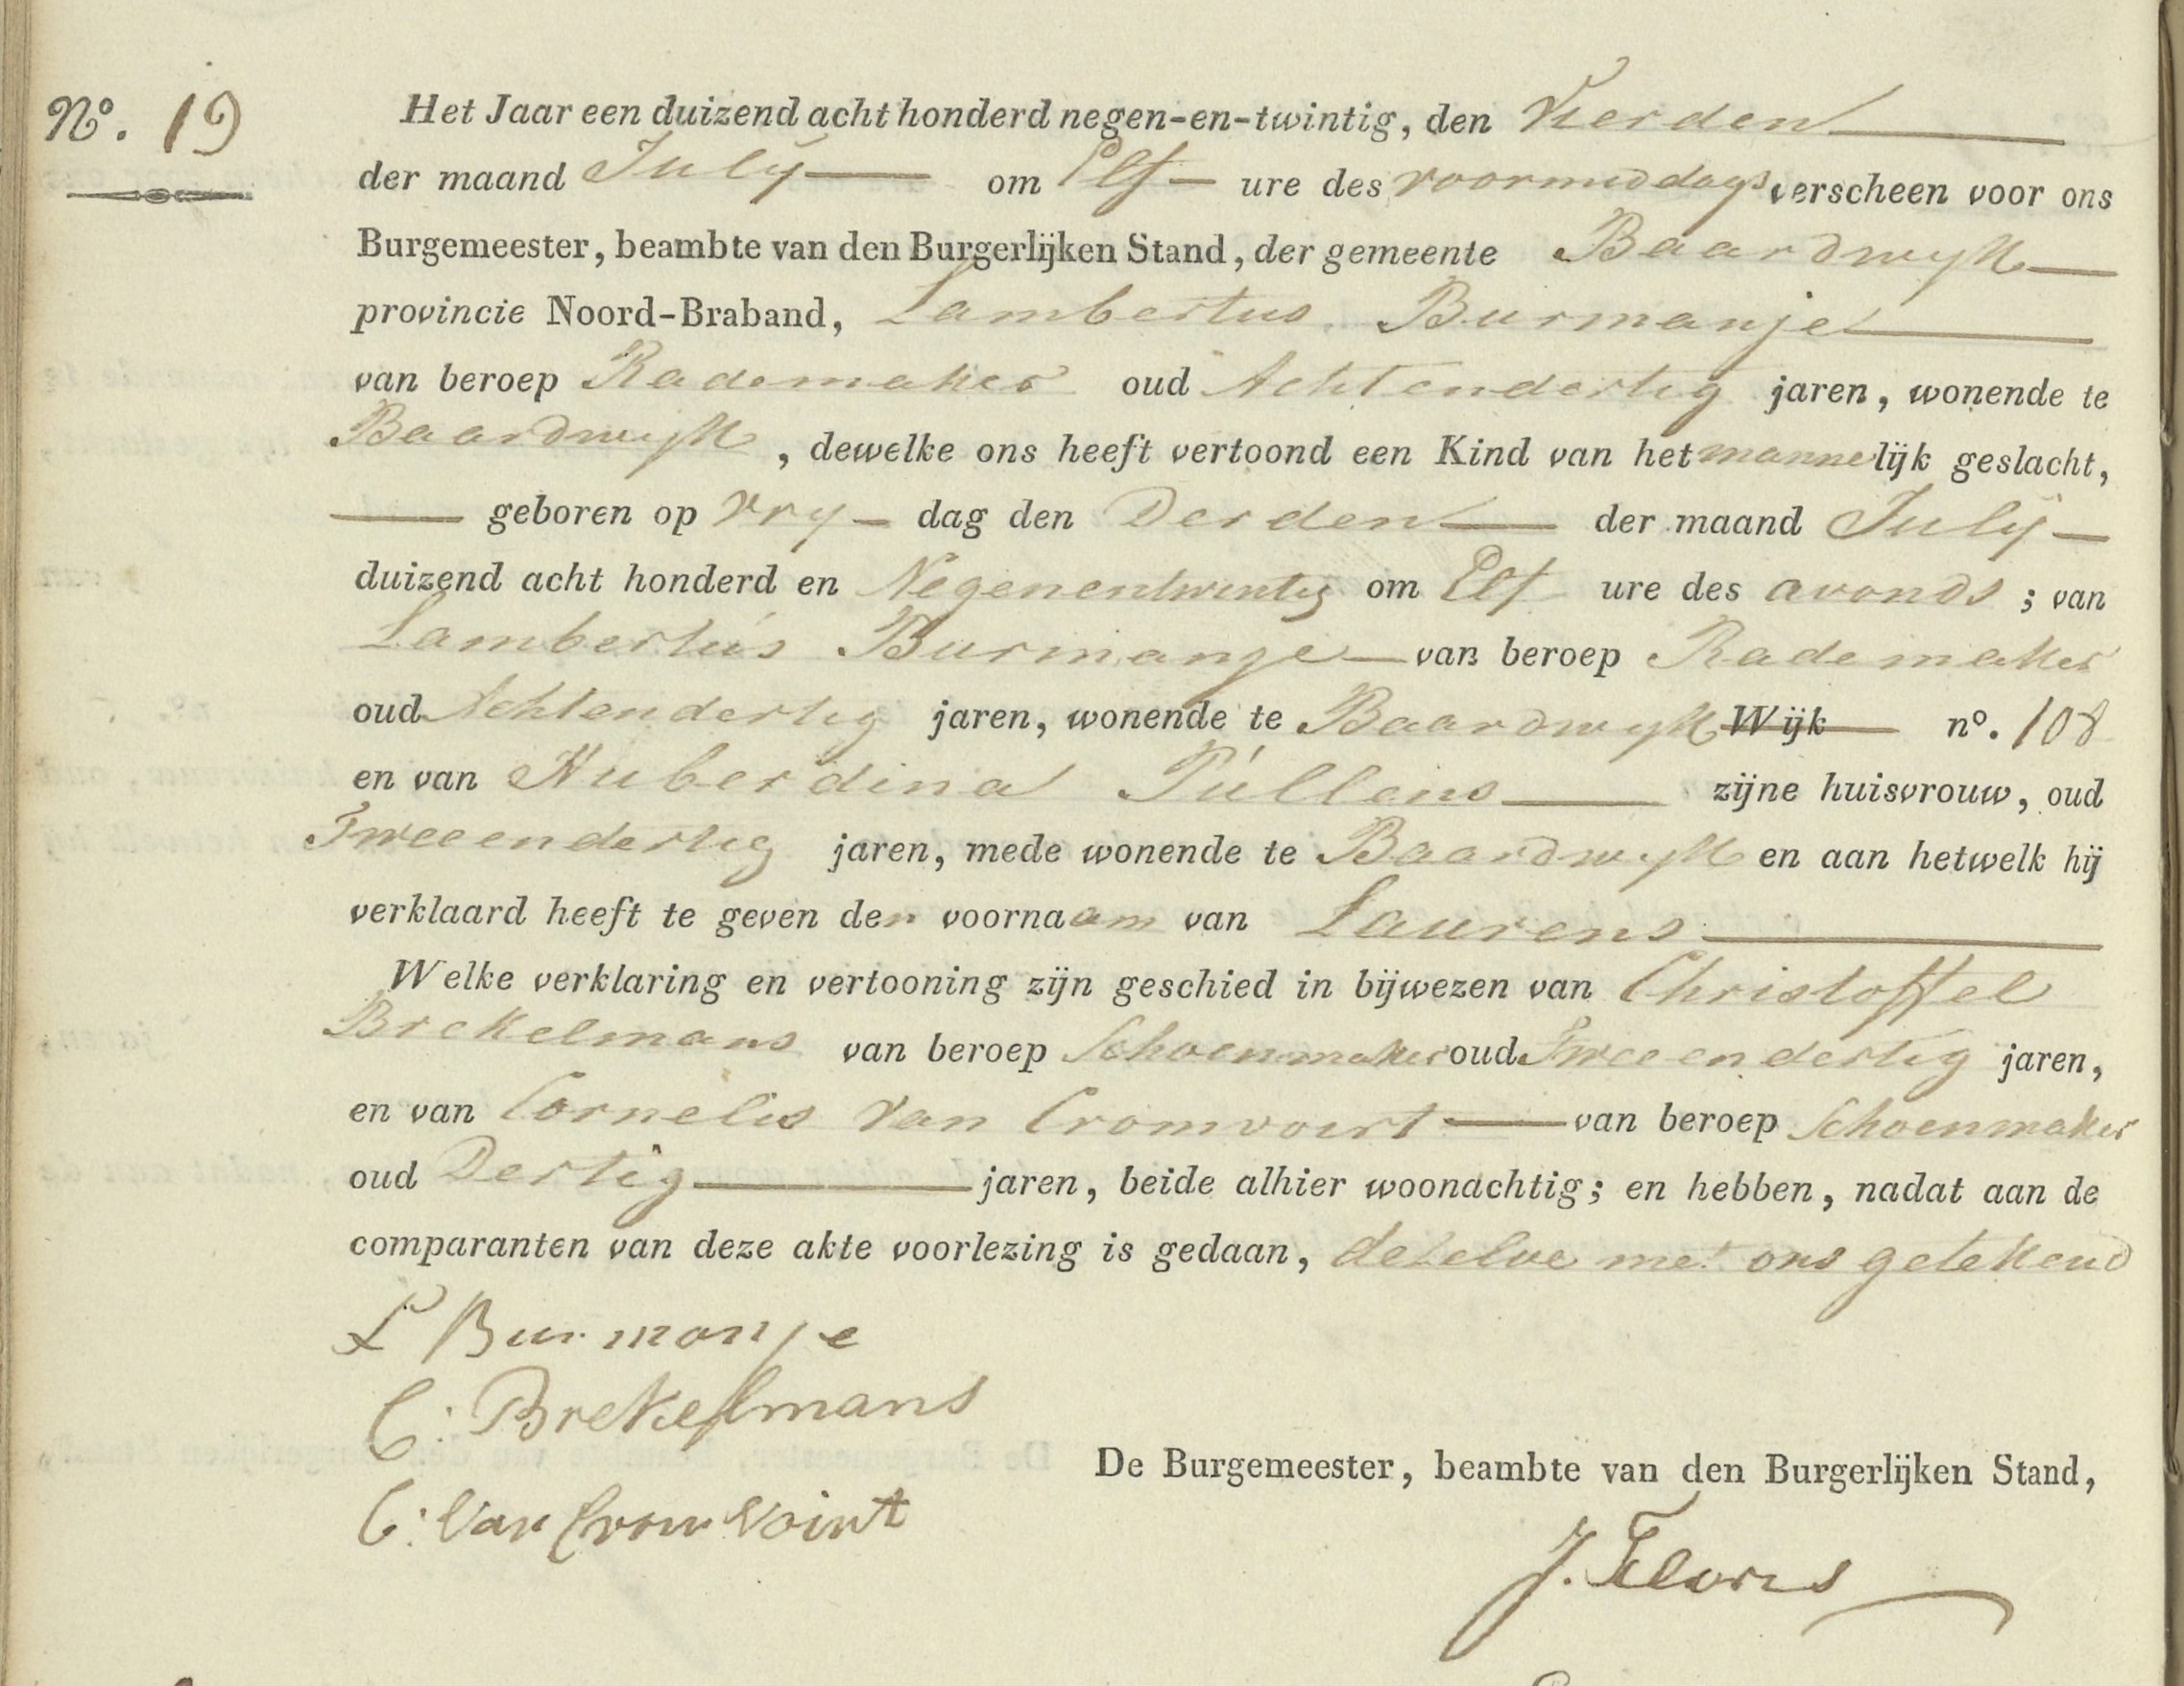 Nº. 19
Het Jaar een duizend acht honderd negen-en-twintig, den Vierden
der maand July om Elf ure des voormiddags verscheen voor ons
Burgemeester, beambte van den Burgerlijken Stand, der gemeente Baardwyk
provincie Noord-Braband, Lambertus Burmanje
van beroep Rademaker oud Achtendertig jaren, wonende te
Baardwyk, dewelke ons heeft vertoond een Kind van het mannelijk geslacht,
geboren op Vry dag den Derden der maand July
duizend acht honderd en Negenentwintig om Elf ure des avonds; van
Lambertus Burmanje van beroep Rademaker
oud Achtendertig jaren, wonende te Baardwyk Wijk nº. 108
en van Huberdina Pullens zijne huisvrouw, oud
Tweeendertig jaren, mede wonende te Baardwyk en aan hetwelk hij
verklaard heeft te geven den voornaam van Laurens
Welke verklaring en vertooning zijn geschied in bijwezen van Christoffel
Brekelmans van beroep Schoenmaker oud Tweeendertig jaren,
en van Cornelis van Cromvoirt van beroep Schoenmaker
oud Dertig jaren, beide alhier woonachtig; en hebben, nadat aan de
comparanten van deze akte voorlezing is gedaan, dezelve met ons getekend
L Burmanje
C: Brekelmans
C: Van Cromvoirt
De Burgemeester, beambte van den Burgerlijken Stand,